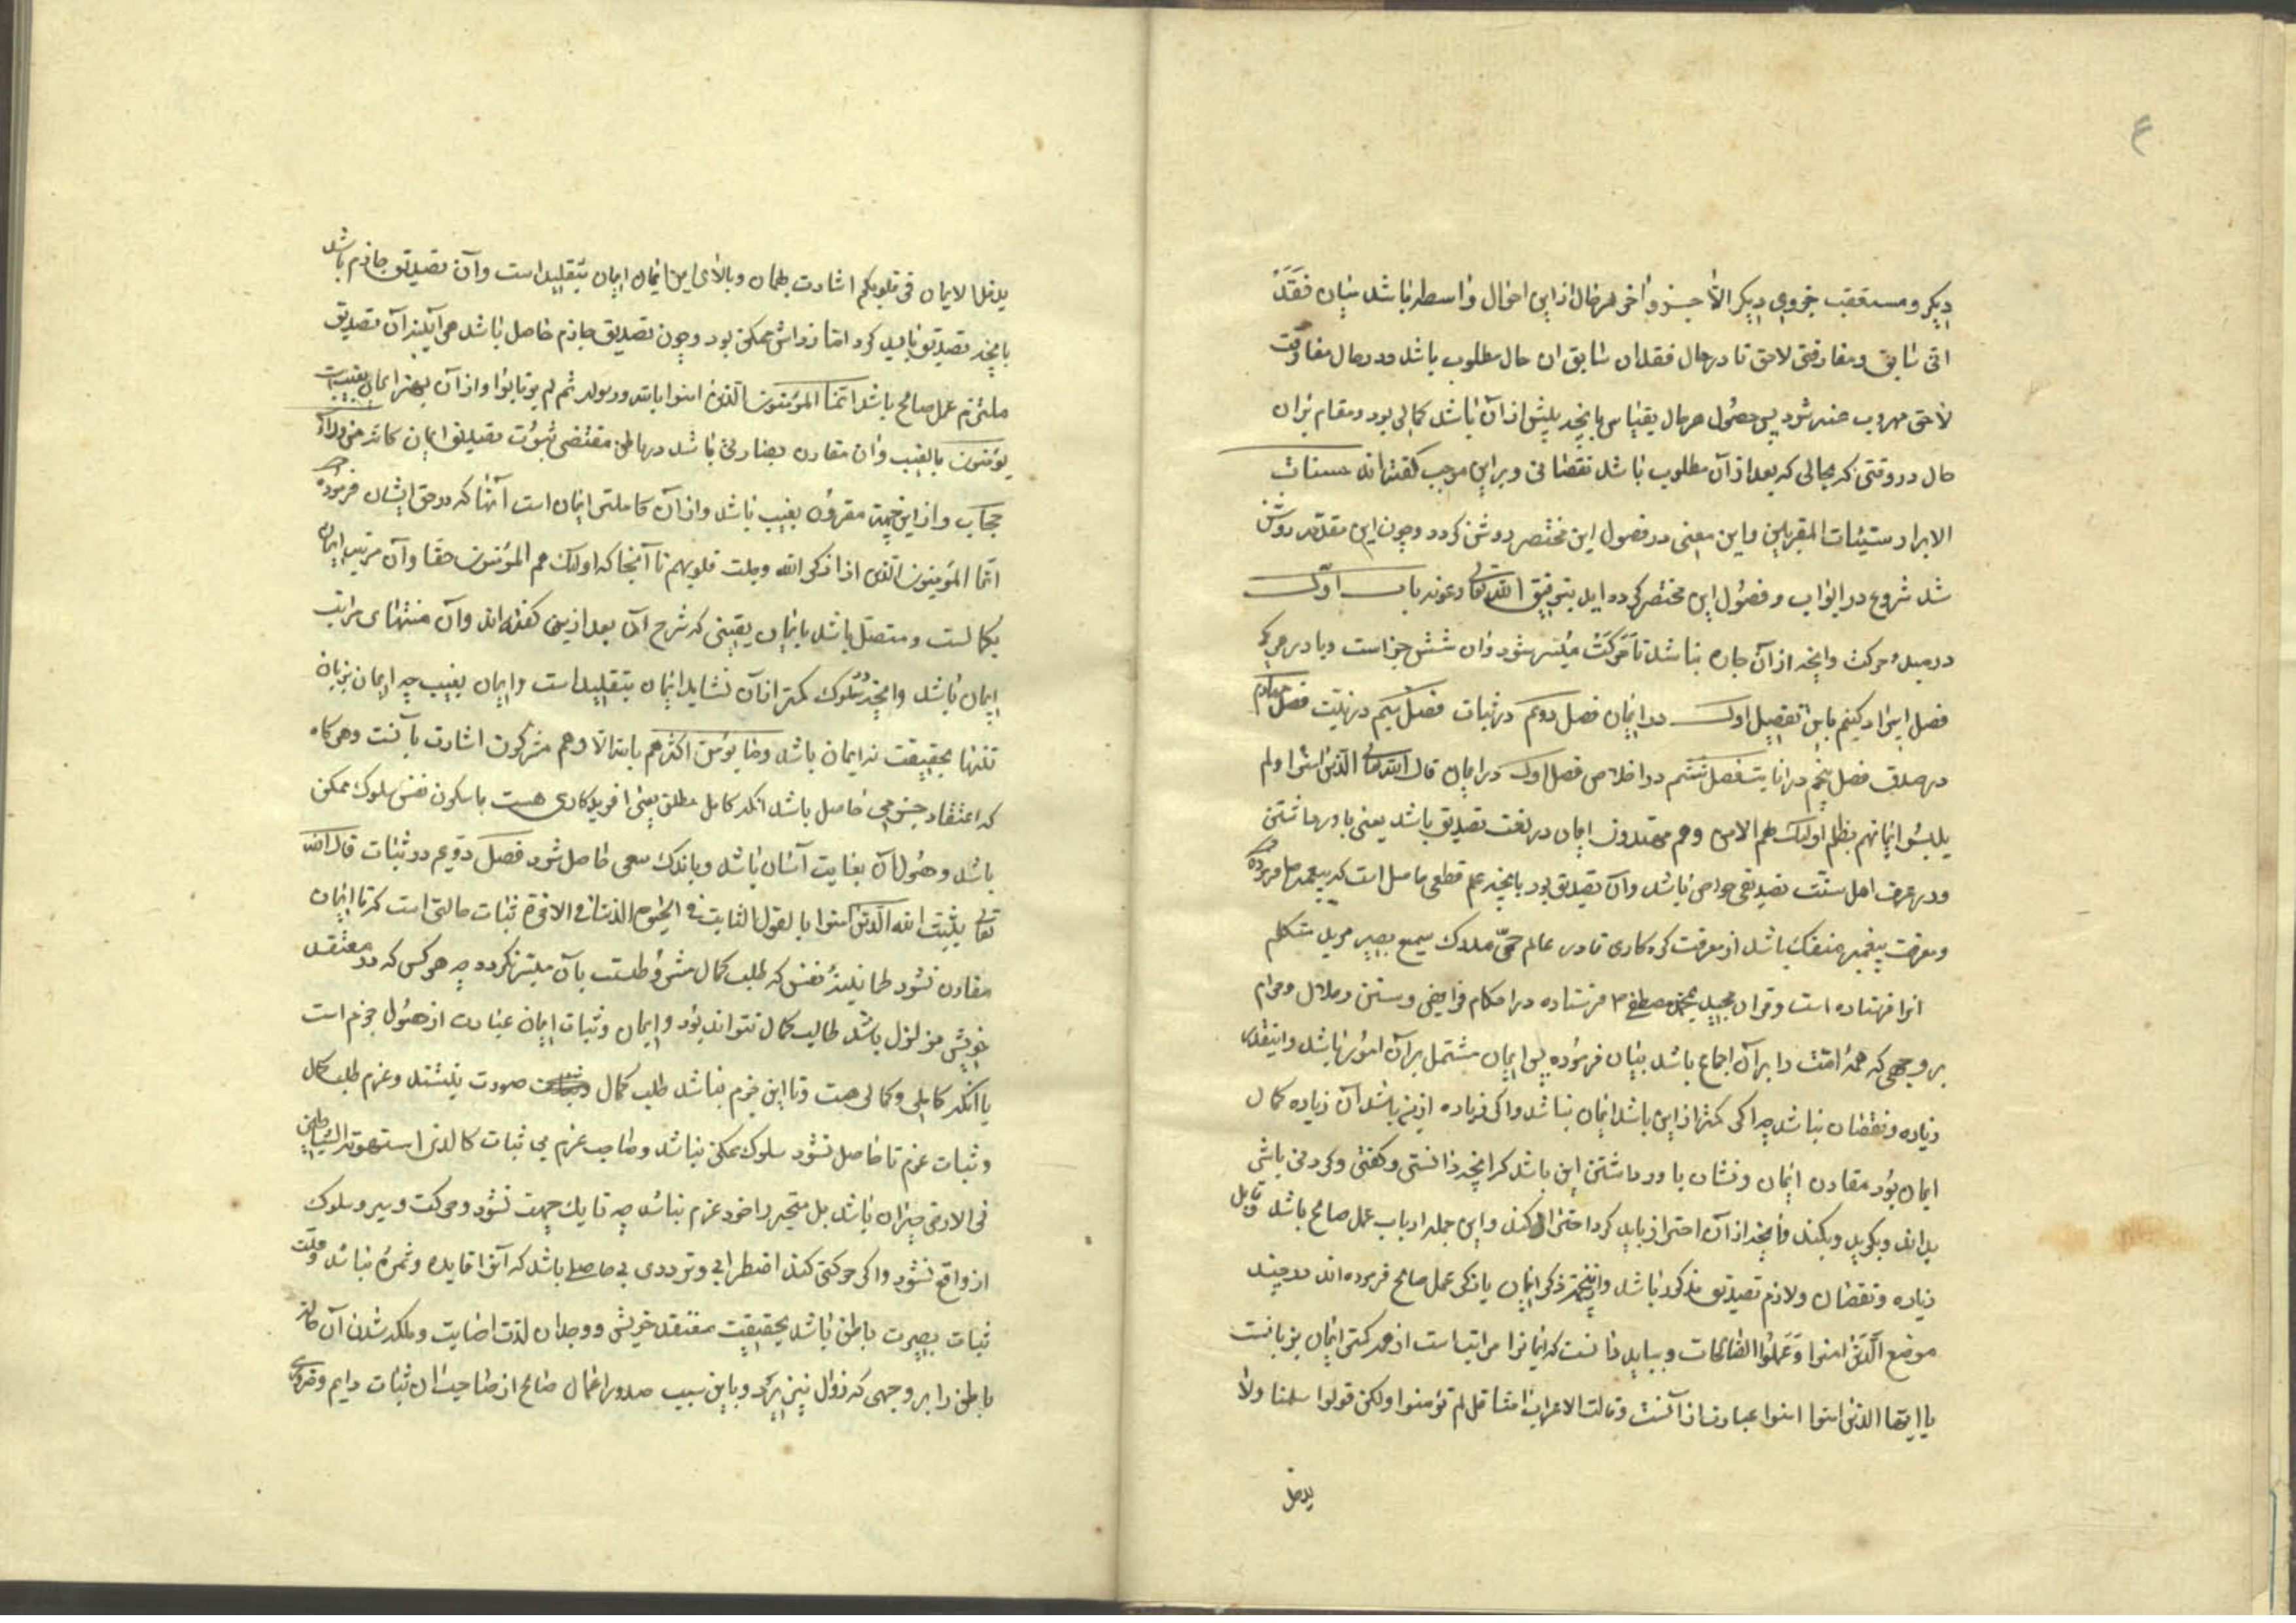 ۴
دیکر و مستعقب جزوی دیکر الا جزو اخر هر حال ازاین احوال واسطه باشد میان فقد
انی سابق و مفارقتی لاحق تا در حال فقدان سابق ان حال مطلوب باشد و در حال مفارقت
لاحق مهروب عنه شود پس حصول هر حال بقیاس بانچه پیش ازآن باشد کمالی بود و مقام بران
حال در وقتی که بحالی که بعد ازآن مطلوب باشد نقصانی و براین موجب کفته‌اند حسنات
الابرار سیئات المقربین واین معنی در فصول این مختصر روشن کردد وچون این مقدمه روشن
شد شروع در ابواب و فصول این مختصر کرده اید بتوفیق الله تعالی و عونه باب اول
در مبدء حرکت وانچه ازآن چاره نباشد تا حرکت میسر شود وان شش چیز است و بادر هر یک
فصل ایراد کنیم باین تفصیل اول در ایمان فصل دویم در ثبات فصل سیم در نیت فصل چهارم
در صدق فصل پنجم در انابت فصل ششم در اخلاص فصل اول در ایمان قال الله تعالی الذین امنوا ولم
یلبسوا ایمانهم بظلم اولئک لهم الامن وهم مهتدون ایمان در لغت تصدیق باشد یعنی باور داشتن
ودر عرف اهل سنت تصدیقی خواص باشد وآن تصدیق بود بانچه علم قطعی حاصل است که پیغمبر ص فرموده
ومعرفت پیغمبر منفک باشد از معرفت کردکاری قادر عالم حی مدرک سمیع بصیر مرید متکلم
انرا فرستاده است وقران مجید بمحمد مصطفی ص فرستاده در احکام فرایض و سنن وحلال وحرام
بر وجهی که همه امت را برآن اجماع باشد بیان فرموده پس ایمان مشتمل برآن امور باشد واینقدر
زیاده ونقصان نباشد چه اکر کمتر ازاین باشد ایمان نباشد واکر زیاده ازین باشد آن زیاده کمال
ایمان بود مقارن ایمان و نشان باور داشتن این باشد که انچه دانستنی وکفتنی وکردنی باشد
بداند وبکوید وبکند وانچه ازآن احتراز باید کرد احتراز کند واین جمله ازباب عمل صالح باشد وقابل
زیاده ونقصان ولازم تصدیق مذکور باشد وازینجهة ذکر ایمان یا ذکر عمل صالح فرموده اند در چند
موضع الذین امنوا وعملوا الصالحات وبباید دانست که ایمانرا مراتب است از همه کمتر ایمان بزبانست
یا ایها الذین امنوا امنوا عبارت ازآنست وقالت الاعراب امنا قل لم تؤمنوا ولکن قولوا سلمنا ولما
یدخل
یدخل الایمان فی قلوبکم اشارت بهمان وبالای این ایمان ایمان بتقلید است وآن تصدیق جازم باشد
بانچه تصدیق باید کرد اما زوالش ممکن بود وچون تصدیق جازم حاصل باشد هر آینه آن تصدیق
ملتزم عمل صالح باشد انما المؤمنون الذین امنوا بالله ورسوله ثم لم یرتابوا وازآن بهتر ایمان بغیبست
یؤمنون بالغیب وان مقارن بصارتی باشد در باطن مقتضی ثبوت تصدیق ایمان کانه من وراء
حجاب وازاین جهت مقرون بغیب باشد وازآن کاملتر ایمان است آنها که در حق ایشان فرموده
انما المؤمنون الذین اذا ذکر الله وجلت قلوبهم تا آنجا که اولئک هم المؤمنون حقا وآن مرتبه ایمان
بکمالست ومتصل باشد بایمان یقینی که شرح آن بعد ازین کفته اند وآن منتهای مراتب
ایمان باشد وانچه در سلوک کمتر ازآن نشاید ایمان بتقلید است وایمان بغیب چه ایمان بزبان
تنها بحقیقت نه ایمان باشد وما یؤمن اکثرهم بالله الا وهم مشرکون اشارت بآنست وهرکاه
که اعتقاد جزمی حاصل باشد انکه کامل مطلق یعنی افریدکاری هست با سکون نفس سلوک ممکن
باشد وحصول آن بغایت آسان باشد وباندک سعی حاصل شود فصل دویم در ثبات قال الله
تعالی یثبت الله الذین امنوا بالقول الثابت فی الحیوة الدنیا وفی الاخرة ثبات حالتی است که تا ایمان
مقارن نشود طمانینه نفس که طلب کمال مشروطست بآن میسر نکردد چه هر کس که در معتقد
خویش متزلزل باشد طالب کمال نتواند بود وایمان وثبات ایمان عبارت از حصول جزم است
با آنکه کاملی وکمالی هست وتا این جزم نباشد طلب کمال صورت نبندد وعزم طلب کمال
وثبات عزم تا حاصل نشود سلوک ممکن نباشد وصاحب عزم بی ثبات کالذی استهوته الشیاطین
فی الارض حیران باشد بل متحیر را خود عزم نباشد چه تا یک جهت نشود وحرکت وسیر وسلوک
از واقع نشود واکر حرکتی کند اضطرابی وترددی بی حاصل باشد که آنرا فایده وثمره نباشد وعلت
ثبات بصیرت باطن باشد بحقیقت معتقد خویش ووجدان لذت اصابت وملکه شدن آن حالت
باطن را بر وجهی که زوال نپذیرد وباین سبب صدور اعمال صالح از صاحب ان ثبات دایم وضروری